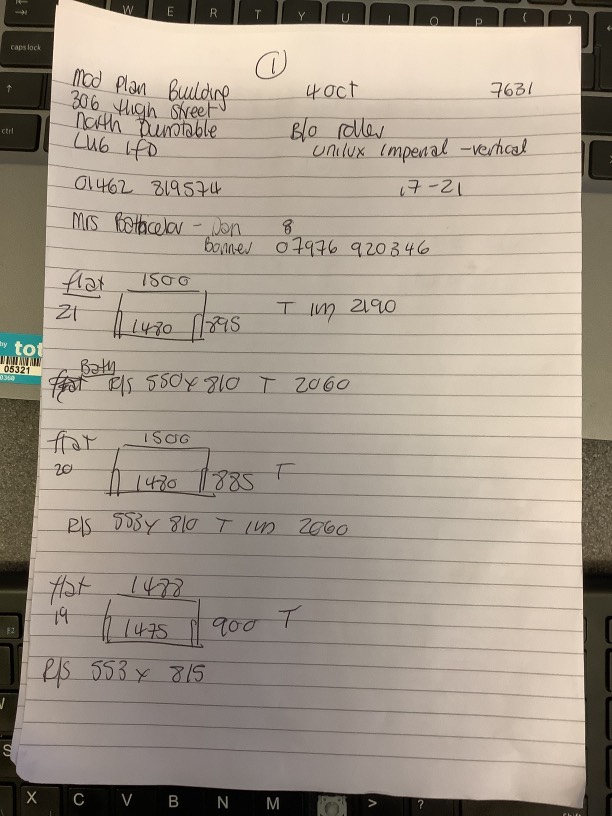 W E R T Y U I O P { }
caps lock
ctrl
①
Mod Plan Building 4 Oct 7631
306 High Street
North Dunstable B/O roller
LU6 1FD Unilux Imperial - vertical
01462 819574 17-21
Mrs - Don 8
Bonner 07976 920346
flat 1500
21 1480 895 T 1m 2190
by tot
05321
0360
Bath R/S 550 x 810 T 2060
flat 1500
20 1480 885 T
R/S 553 x 810 T 1m 2060
flat 1488
19 1475 900 T
R/S 553 x 815
S
X C V B N M > ?